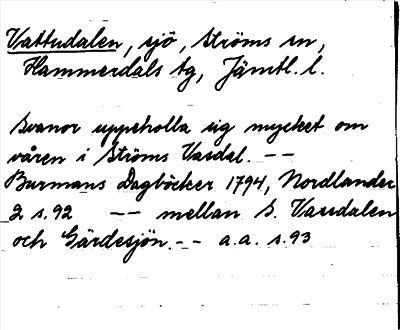 Vattudalen, sjö, Ströms sn,
Hammerdals tg, Jämtl. l.
Svanor uppeholla sig mycket om
våren i Ströms Vasdal. --
Burmans Dagböcker 1794, Nordlander
2 s. 92 -- mellan S. Vassdalen
och Gärdesjön. -- a.a. s. 93